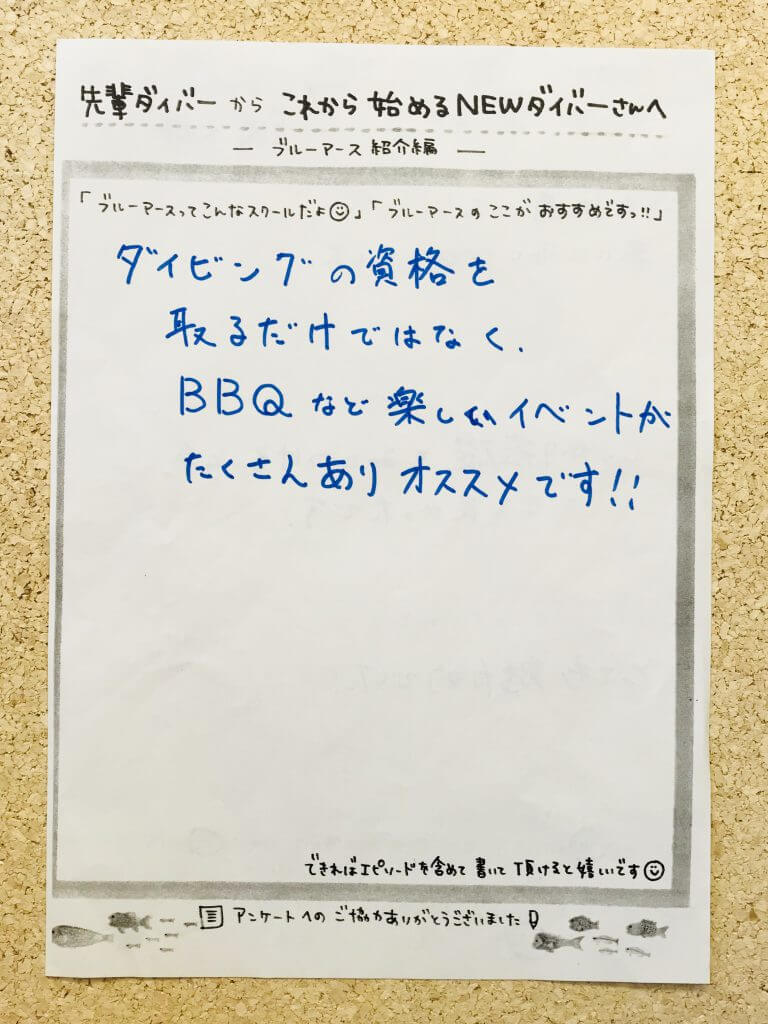 先輩ダイバーから これから始めるNEWダイバーさんへ
― ブルーアース紹介編 ―
「ブルーアースってこんなスクールだよ☺」「ブルーアースのここがおすすめですっ!!」
ダイビングの資格を
取るだけではなく、
BBQなど楽しいイベントが
たくさんありオススメです!!
できればエピソードを含めて書いて頂けると嬉しいです☺
アンケートへのご協力ありがとうございました